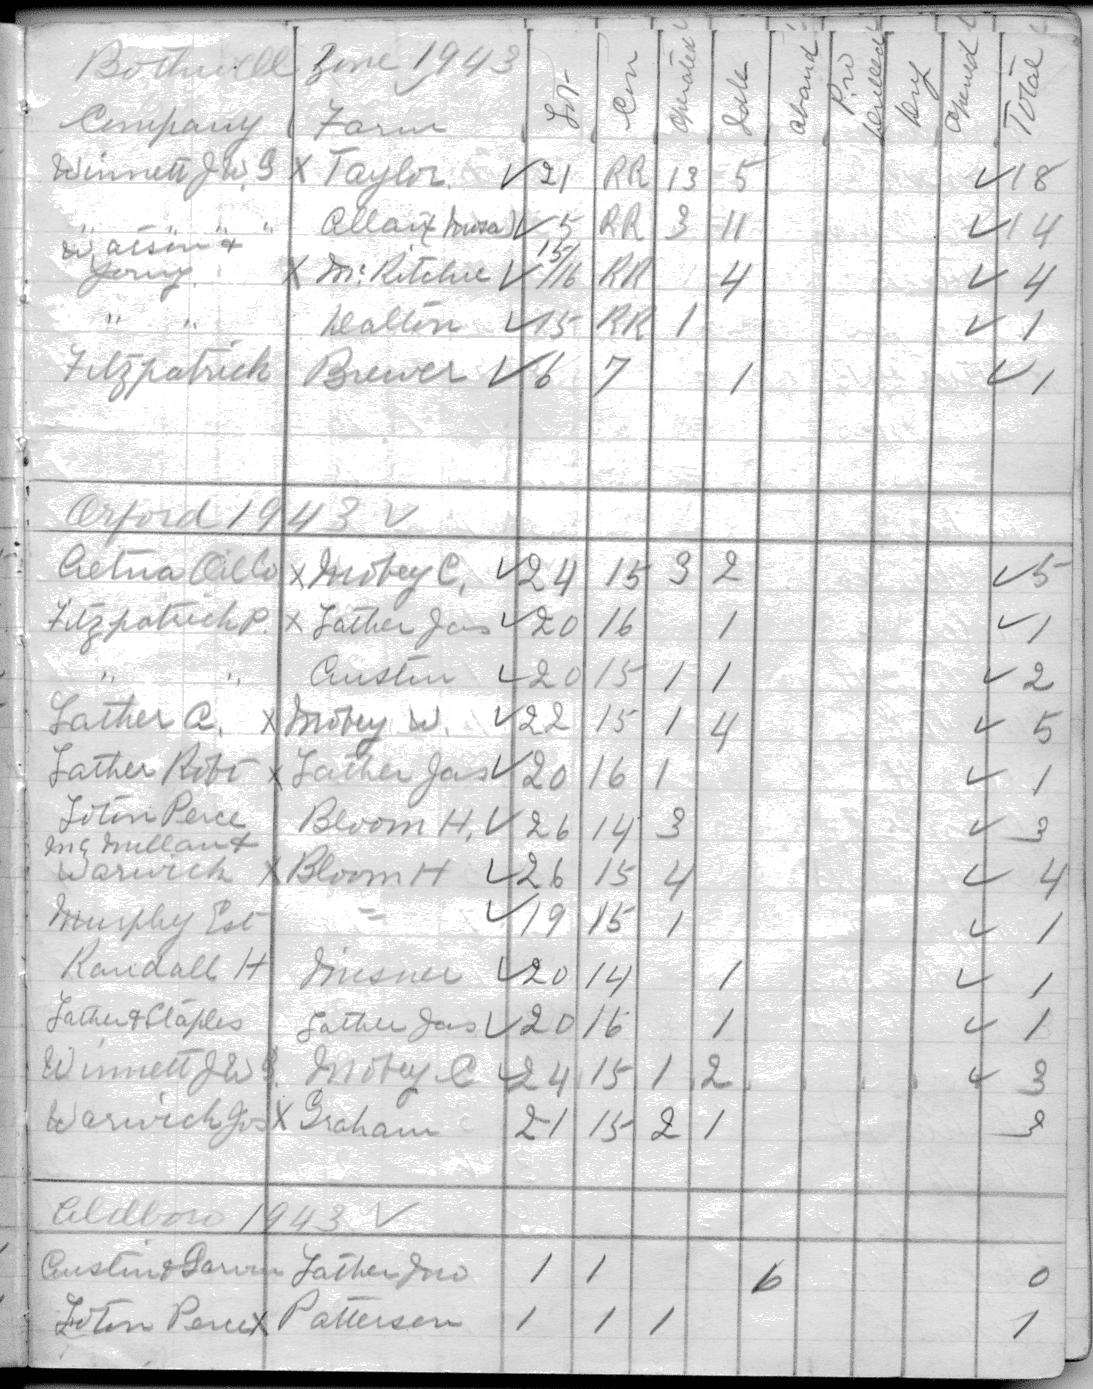 Bothwell Zone 1943
Company Farm Lot Con Operated Idle Aband Pro Drilled Dry Opened Total
Winnett J W. G X Taylor ✓ 21 RR 13 5 ✓ 18
" " " Allan ✓ 5 RR 3 11 ✓ 14
Watson &
X Mc Ritchie ✓ 15/16 RR 4 ✓ 4
" " Dalton ✓ 15 RR 1 ✓ 1
Fitzpatrick Brewer ✓ 6 7 1 ✓ 1
Orford 1943 ✓
Aetna Oil Co X Mobey C. ✓ 24 15 3 2 ✓ 5
Fitzpatrick P. X Father Jas ✓ 20 16 1 ✓ 1
" " Austin ✓ 20 15 1 1 ✓ 2
Father A. X Mobey W. ✓ 22 15 1 4 ✓ 5
Father Robt X Father Jas ✓ 20 16 1 ✓ 1
Perce Bloom H. ✓ 26 14 3 ✓ 3
Mc Millan &
Warwick X Bloom H ✓ 26 15 4 ✓ 4
Murphy Est " ✓ 19 15 1 ✓ 1
Randall H Misner ✓ 20 14 1 ✓ 1
Father & Staples Father Jas ✓ 20 16 1 ✓ 1
Winnett J W G. Mobey C ✓ 24 15 1 2 ✓ 3
Warwick Jos X Graham 21 15 2 1 3
Aldboro 1943 ✓
Austin & Father Jno 1 1 6 0
Perce X Patterson 1 1 1 1